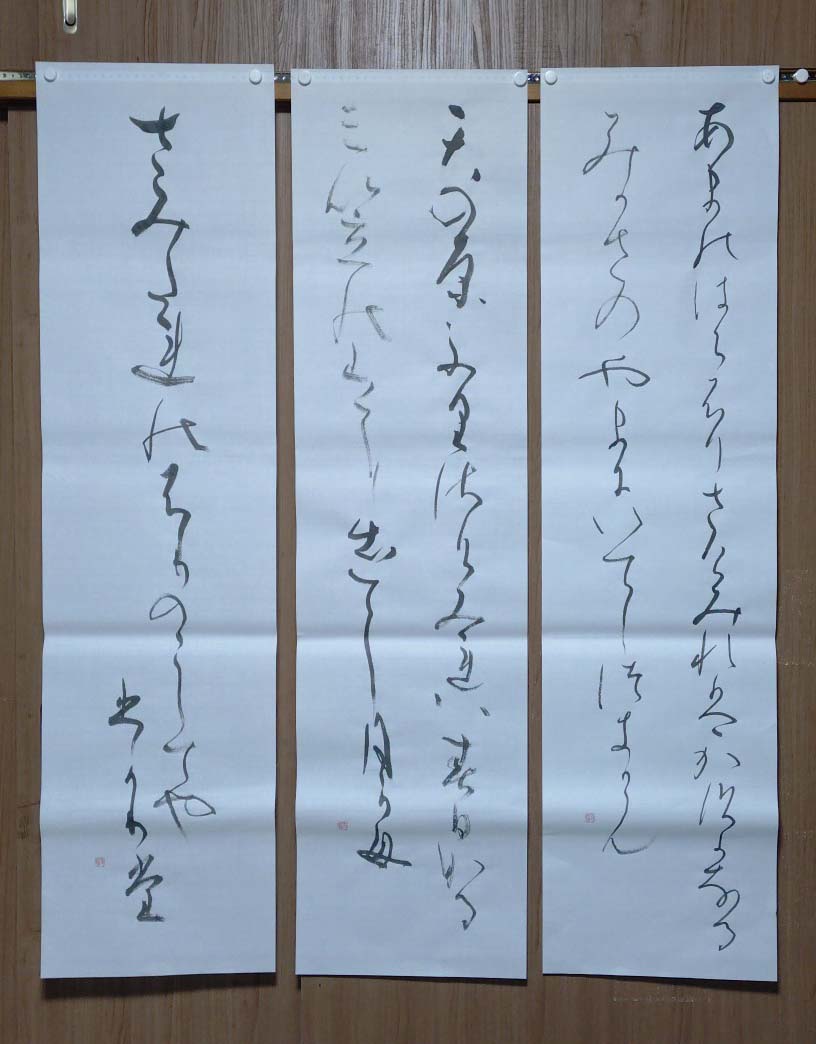 あまのはらふりさけみれはかすかなる
みかさのやまにいてしつきかも
天の原ふり佐けみ連ハ春日なる
三笠の山に出てし月か母
さみたれのふりのこしてや
ひかり堂